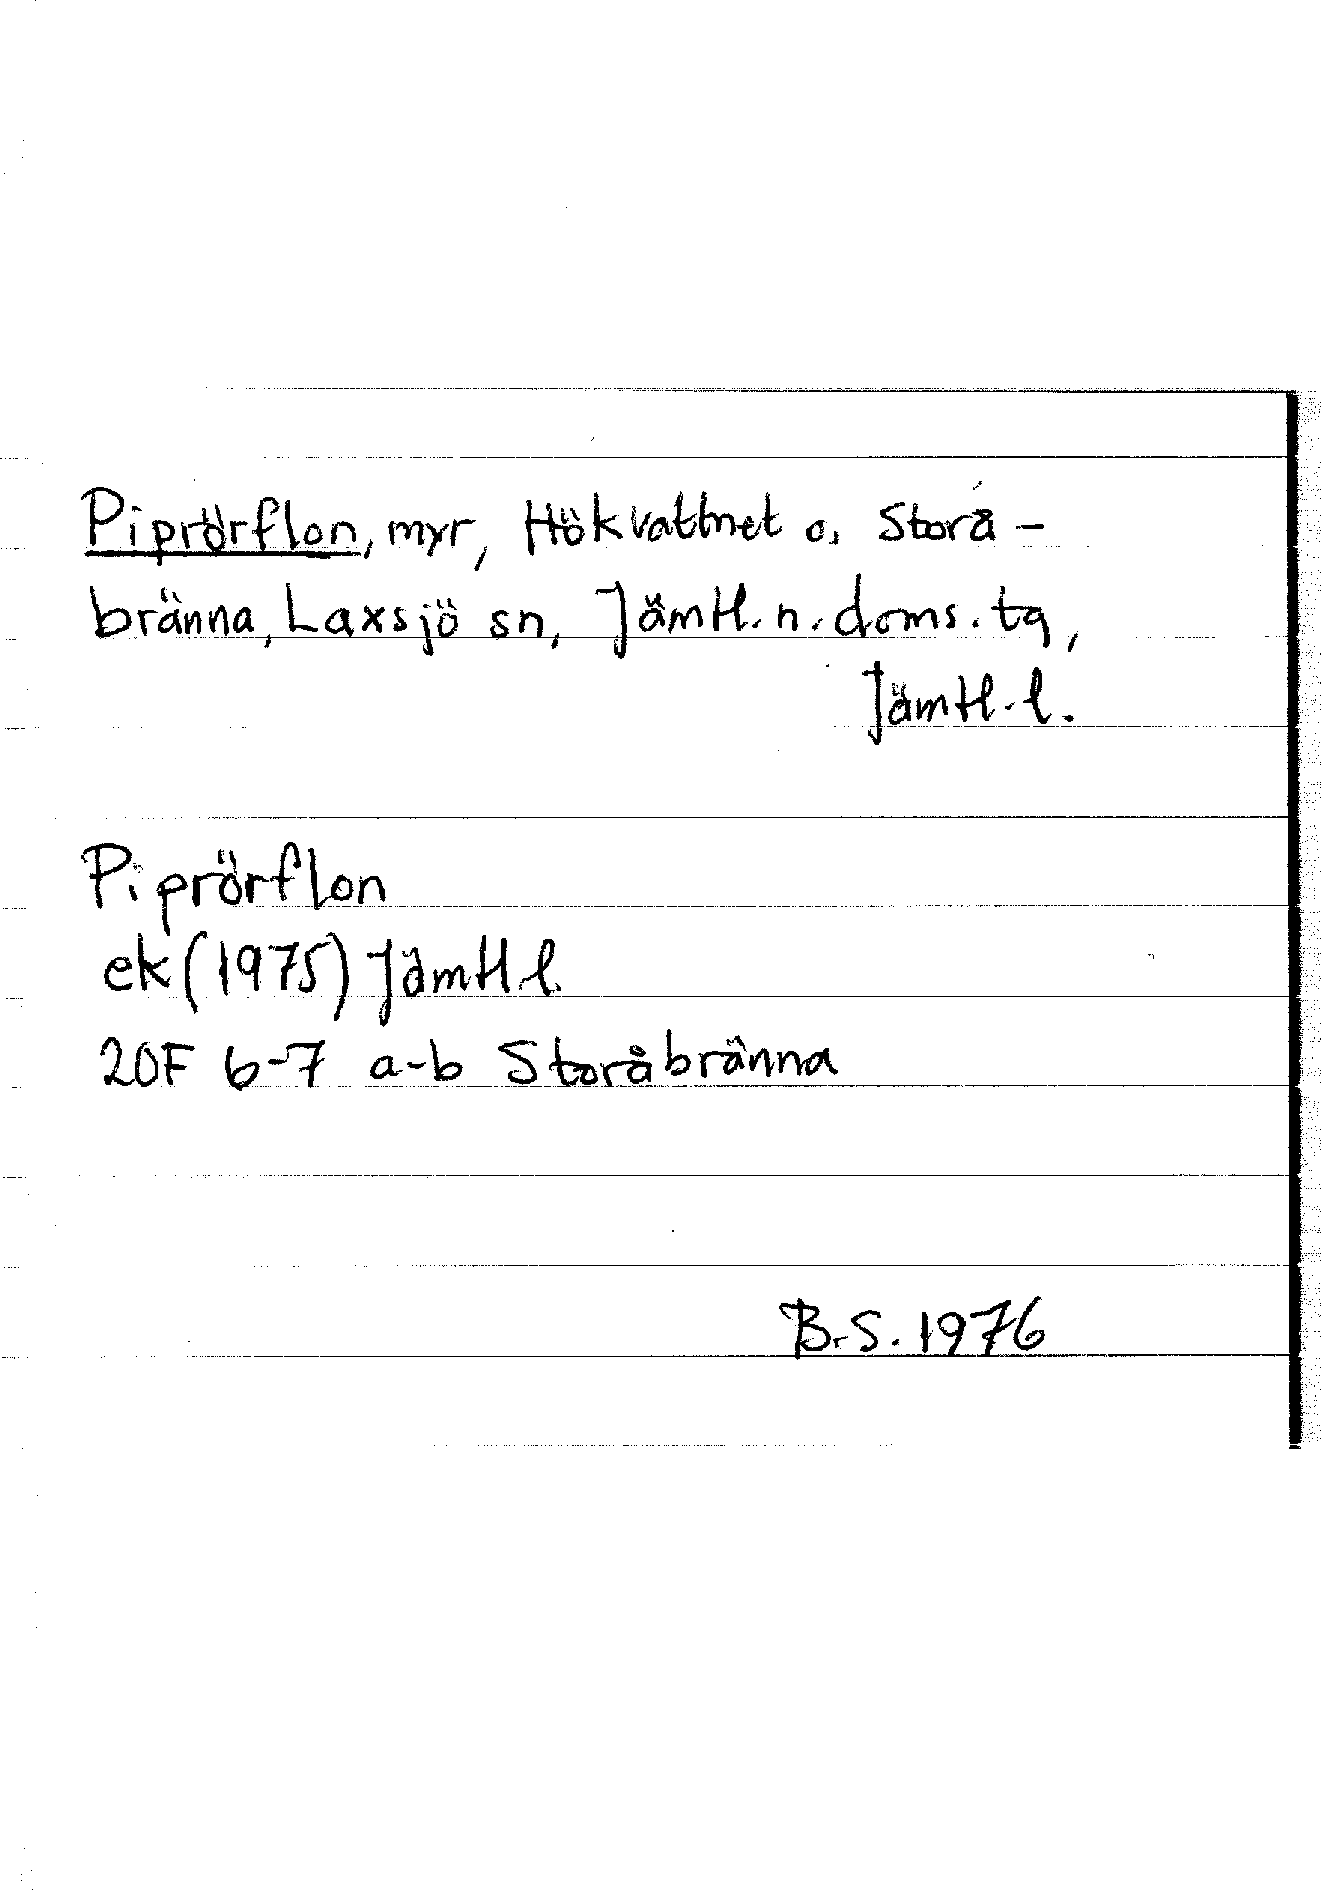 Piprörflon, myr, Hökvattnet o. Storå-
bränna, Laxsjö sn, Jämtl. n. doms. tg,
Jämtl. l.
Piprörflon
ek (1975) Jämtl l.
20F 6-7 a-b Storåbränna
B.S. 1976